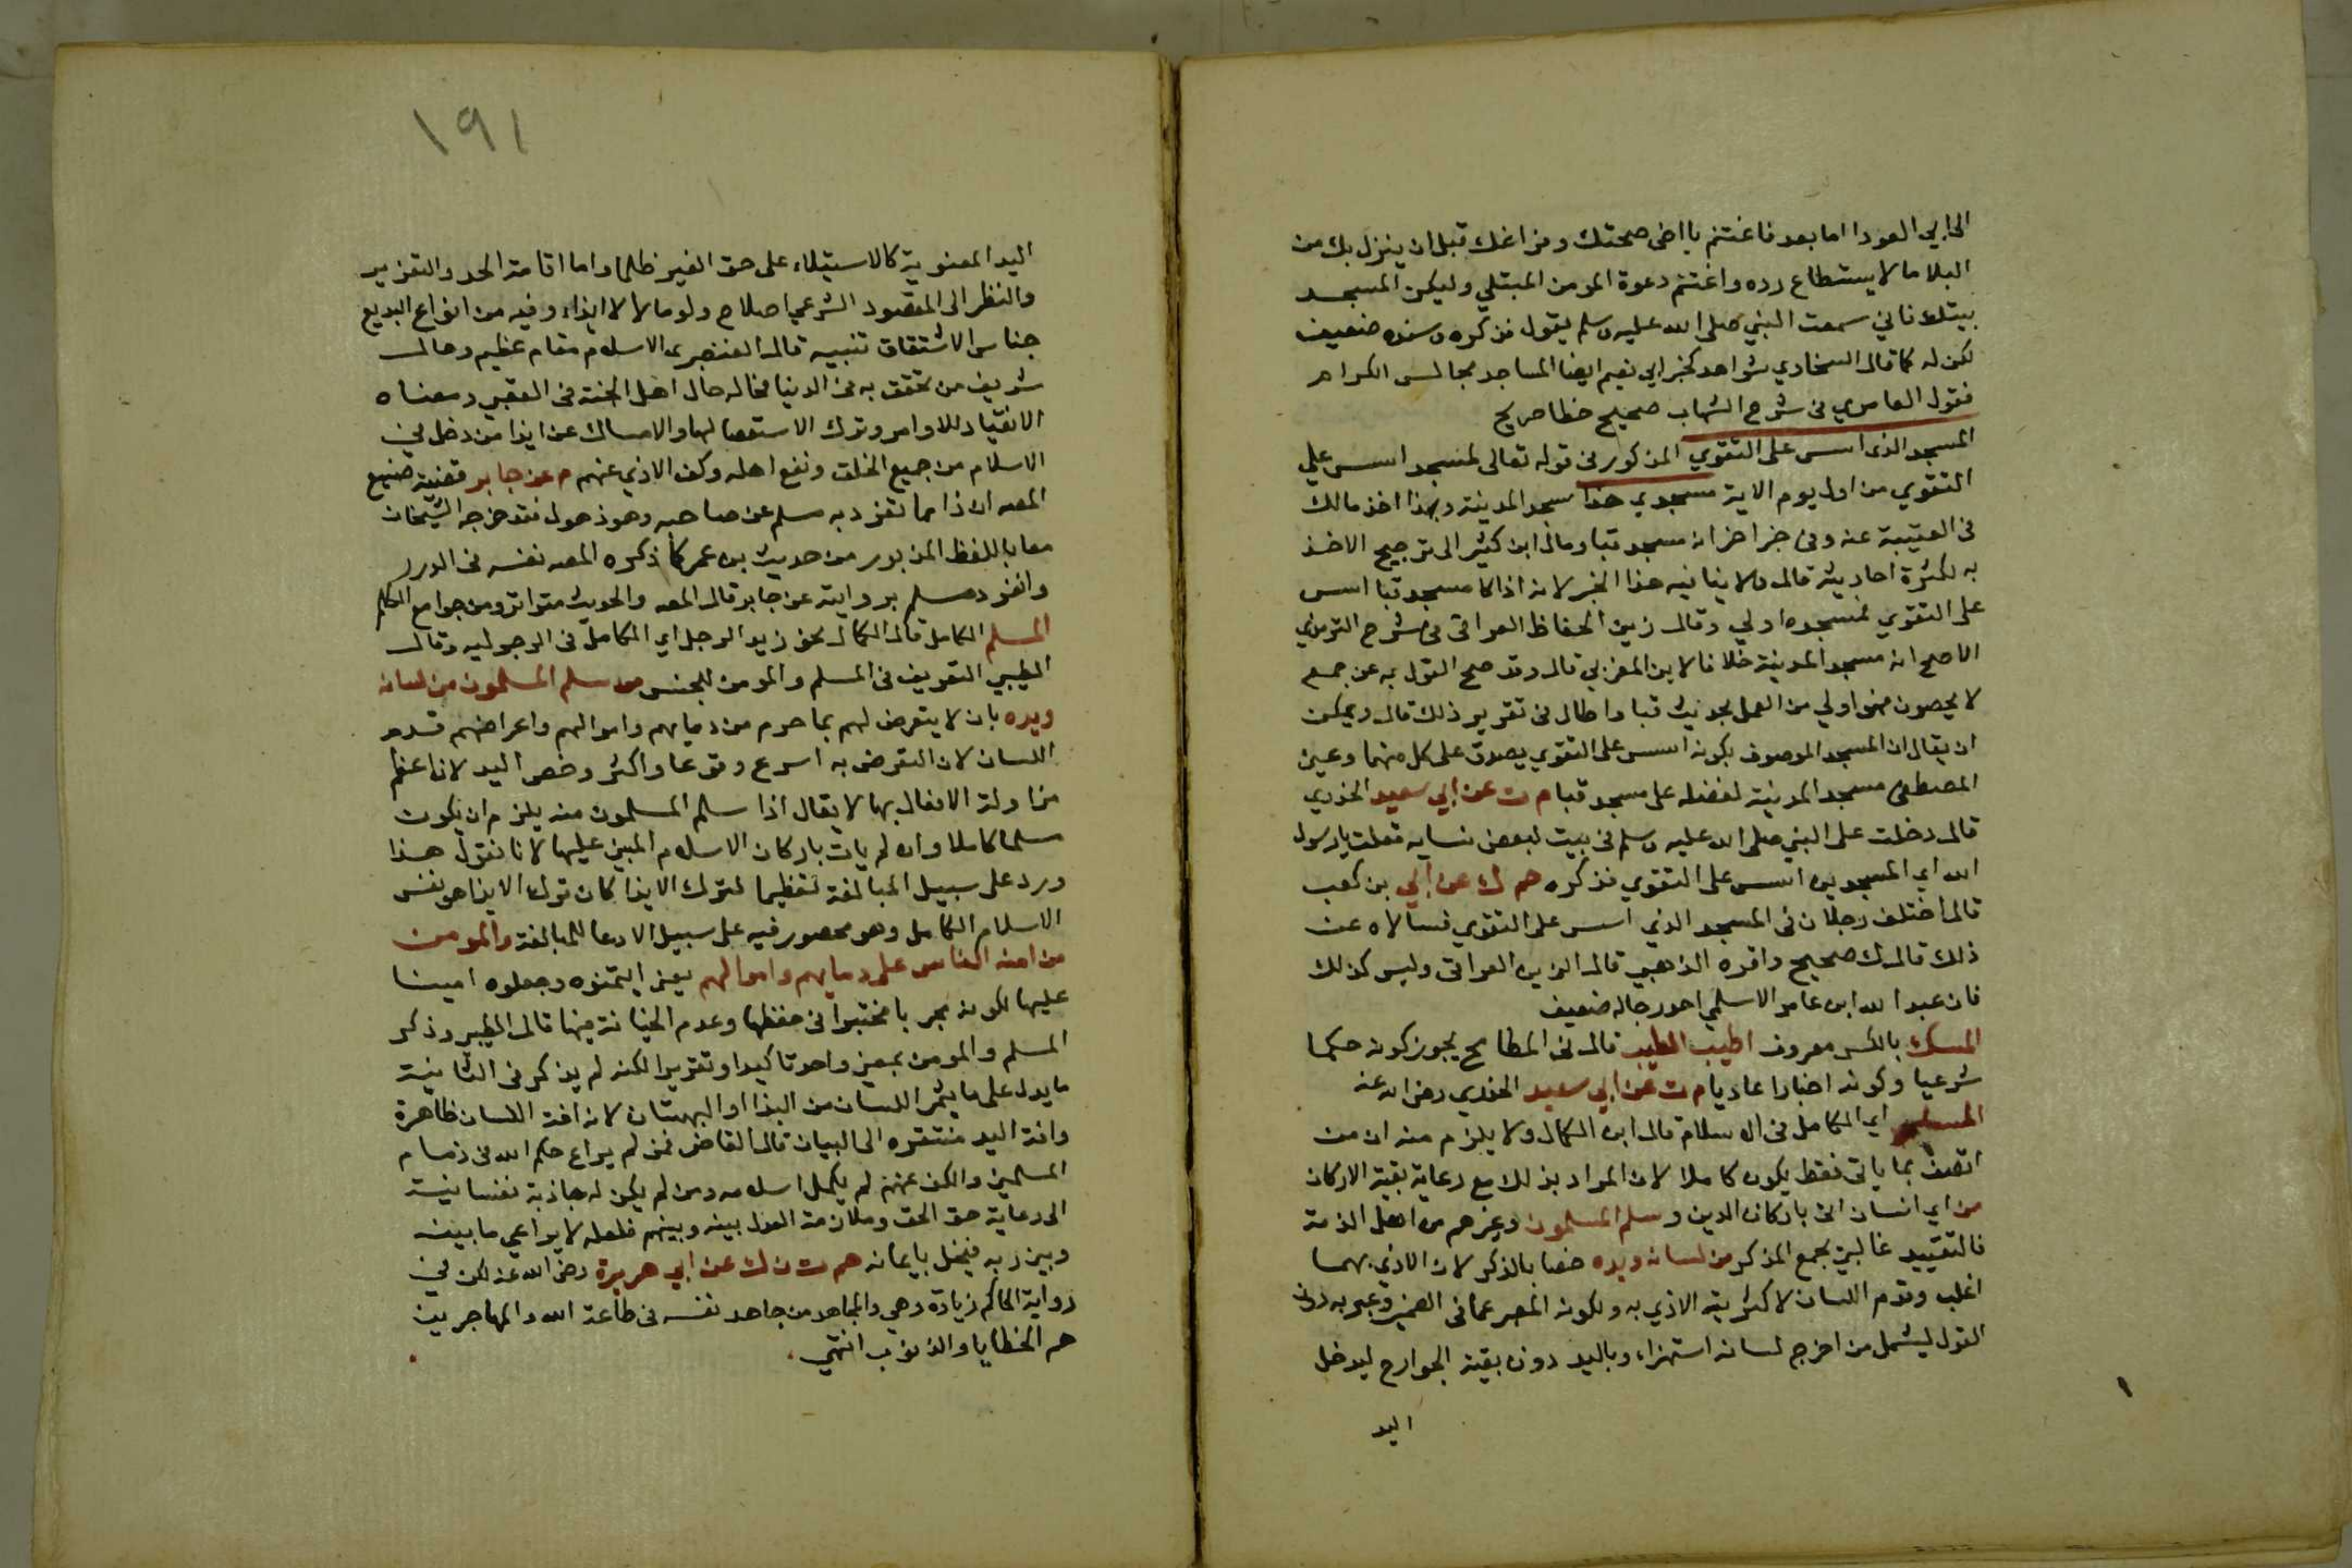 الى ابي الدردا اما بعد فاغتنم يا اخى صحتك وفراغك قبل ان ينزل بك من
البلا ما لا يستطاع رده واغتنم دعوة المومن المبتلي وليكن المسجد
بيتك فاني سمعت النبي صلى الله عليه وسلم يقول فذكره وسنده ضعيف
لكن له كما قال السخاوي شواهد كخبر ابي نعيم ايضا المساجد مجالس الكرام
فقول العامري فى شرح الشهاب صحيح خطا صريح
المسجد الذى اسس على التقوي المذكور فى قوله تعالى لمسجد اسس علي
التقوي من اول يوم الاية مسجدي هذا مسجد المدينة وبهذا اخذ مالك
فى العتبية عنه وفى خبر اخر انه مسجد قبا ومال ابن كثير الى ترجيح الاخذ
به لكثرة احاديثه قال ولا ينافيه هذا الخبر لانه اذا كا مسجد قبا اسس
على التقوي فمسجده اولي وقال زين الحفاظ العراقى فى شرح الترمذي
الاصح انه مسجد المدينة خلافا لابن العربي قال وقد صح القول به عن جمع
لا يحصون فهو اولي من العمل بحديث قبا واطال فى تقرير ذلك قال ويمكن
ان يقال ان المسجد الموصوف بكونه اسس على التقوي يصدق على كل منهما وعين
المصطفى مسجد المدينة لفضله على مسجد قبا م ت عن ابي سعيد الخدري
قال دخلت على النبي صلى الله عليه وسلم فى بيت لبعض نسايه فقلت يا رسول
الله اي المسجدين اسس على التقوي فذكره حم ك عن ابي بن كعب
قال اختلف رجلان فى المسجد الذي اسس على التقوي فسالاه عن
ذلك قال ك صحيح واقره الذهبي قال الزين العراقى وليس كذلك
فان عبد الله ابن عامر الاسلمي احد رجاله ضعيف
المسك بالكسر معروف اطيب الطيب قال فى المطامح يجوز كونه حكما
شرعيا وكونه اخبارا عاديا م ت عن ابي سعيد الخدري رضى الله عنه
المسلم اي الكامل فى الاسلام قال ابن الكمال ولا يلزم منه ان من
اتصف بما ياتى فقط يكون كاملا لان المراد بذلك مع رعاية بقية الاركان
من اي انسان اتى باركان الدين وسلم المسلمون وغيرهم من اهل الذمة
فالتقييد غالبي بجمع المذكر من لسانه ويده خصا بالذكر لان الاذي بهما
اغلب وقدم اللسان لاكثرية الاذي به ولكونه المعبر عما فى الضمير وعبر به دون
القول ليشمل من اخرج لسانه استهزاء وباليد دون بقية الجوارح ليدخل
اليد
١٩١
اليد المعنوية كالاستيلاء على حق الغير ظلما واما اقامة الحد والتعزير
والنظر الى المقصود الشرعي اصلاح ولو مالا لا ايذاء وفيه من انواع البديع
جناس الاشتقاق تنبيه قال العنصرى الاسلام مقام عظيم وحال
شريف من تحقق به فى الدنيا فحاله حال اهل الجنة فى العقبى ومعناه
الانقياد للاوامر وترك الاستعصا لها والامساك عن ايذا من دخل في
الاسلام من جميع الخلق ونفع اهله وكف الاذي عنهم م عن جابر قضية صنيع
المصـ ان ذا مما تفرد به مسلم عن صاحبه وهو ذهول فقد خرجه الشيخان
معا باللفظ المزبور من حديث بن عمر كما ذكره المصـ نفسه فى الدرر
وانفرد مسلم بروايته عن جابر قال المصـ والحديث متواتر ومن جوامع الكلم
المسلم الكامل قال الكمال نحو زيد الرجل اي الكامل فى الرجوليه وقال
الطيبي التعريف فى المسلم والمومن للجنس من سلم المسلمون من لسانه
ويده بان لا يتعرض لهم بما حرم من دمايهم واموالهم واعراضهم قدم
اللسان لان التعرض به اسرع وقوعا واكثر وخص اليد لان اعظم
مزاولة الافعال بها لا يقال اذا سلم المسلمون منه يلزم ان يكون
مسلما كاملا وان لم يات باركان الاسلام المبني عليها لانا نقول هذا
ورد على سبيل المبالغة تعظيما لترك الايذا كان ترك الايذا هو نفس
الاسلام الكامل وهو محصور فيه على سبيل الادعا للمبالغة والمومن
من امنه الناس على دمايهم واموالهم يعنى ايتمنوه وجعلوه امينا
عليها لكونه مجربا مختبرا فى حفظها وعدم الخيانة فيها قال الطيبى وذكر
المسلم والمومن بمعنى واحد تاكيدا وتقريرا لكنه لم يذكر فى الثانية
ما يدل على ما يثمر اللسان من البذا او البهتان لان افة اللسان ظاهرة
وافة اليد مفتقره الى البيان قال القاضى فمن لم يراع حكم الله فى ذمام
المسلمين والكف عنهم لم يكمل اسلامه ومن لم يكن له جاذبة نفسانية
الى رعاية حق الحق وملازمة العدل بينه وبينهم فلعله لا يراعي ما بينه
وبين ربه فيخل بايمانه حم ت ن ك عن ابي هريرة رضى الله عنه لكن في
رواية الحاكم زيادة وهي والمجاهد من جاهد نفسه فى طاعة الله والمهاجر من
هجر الخطايا والذنوب انتهى